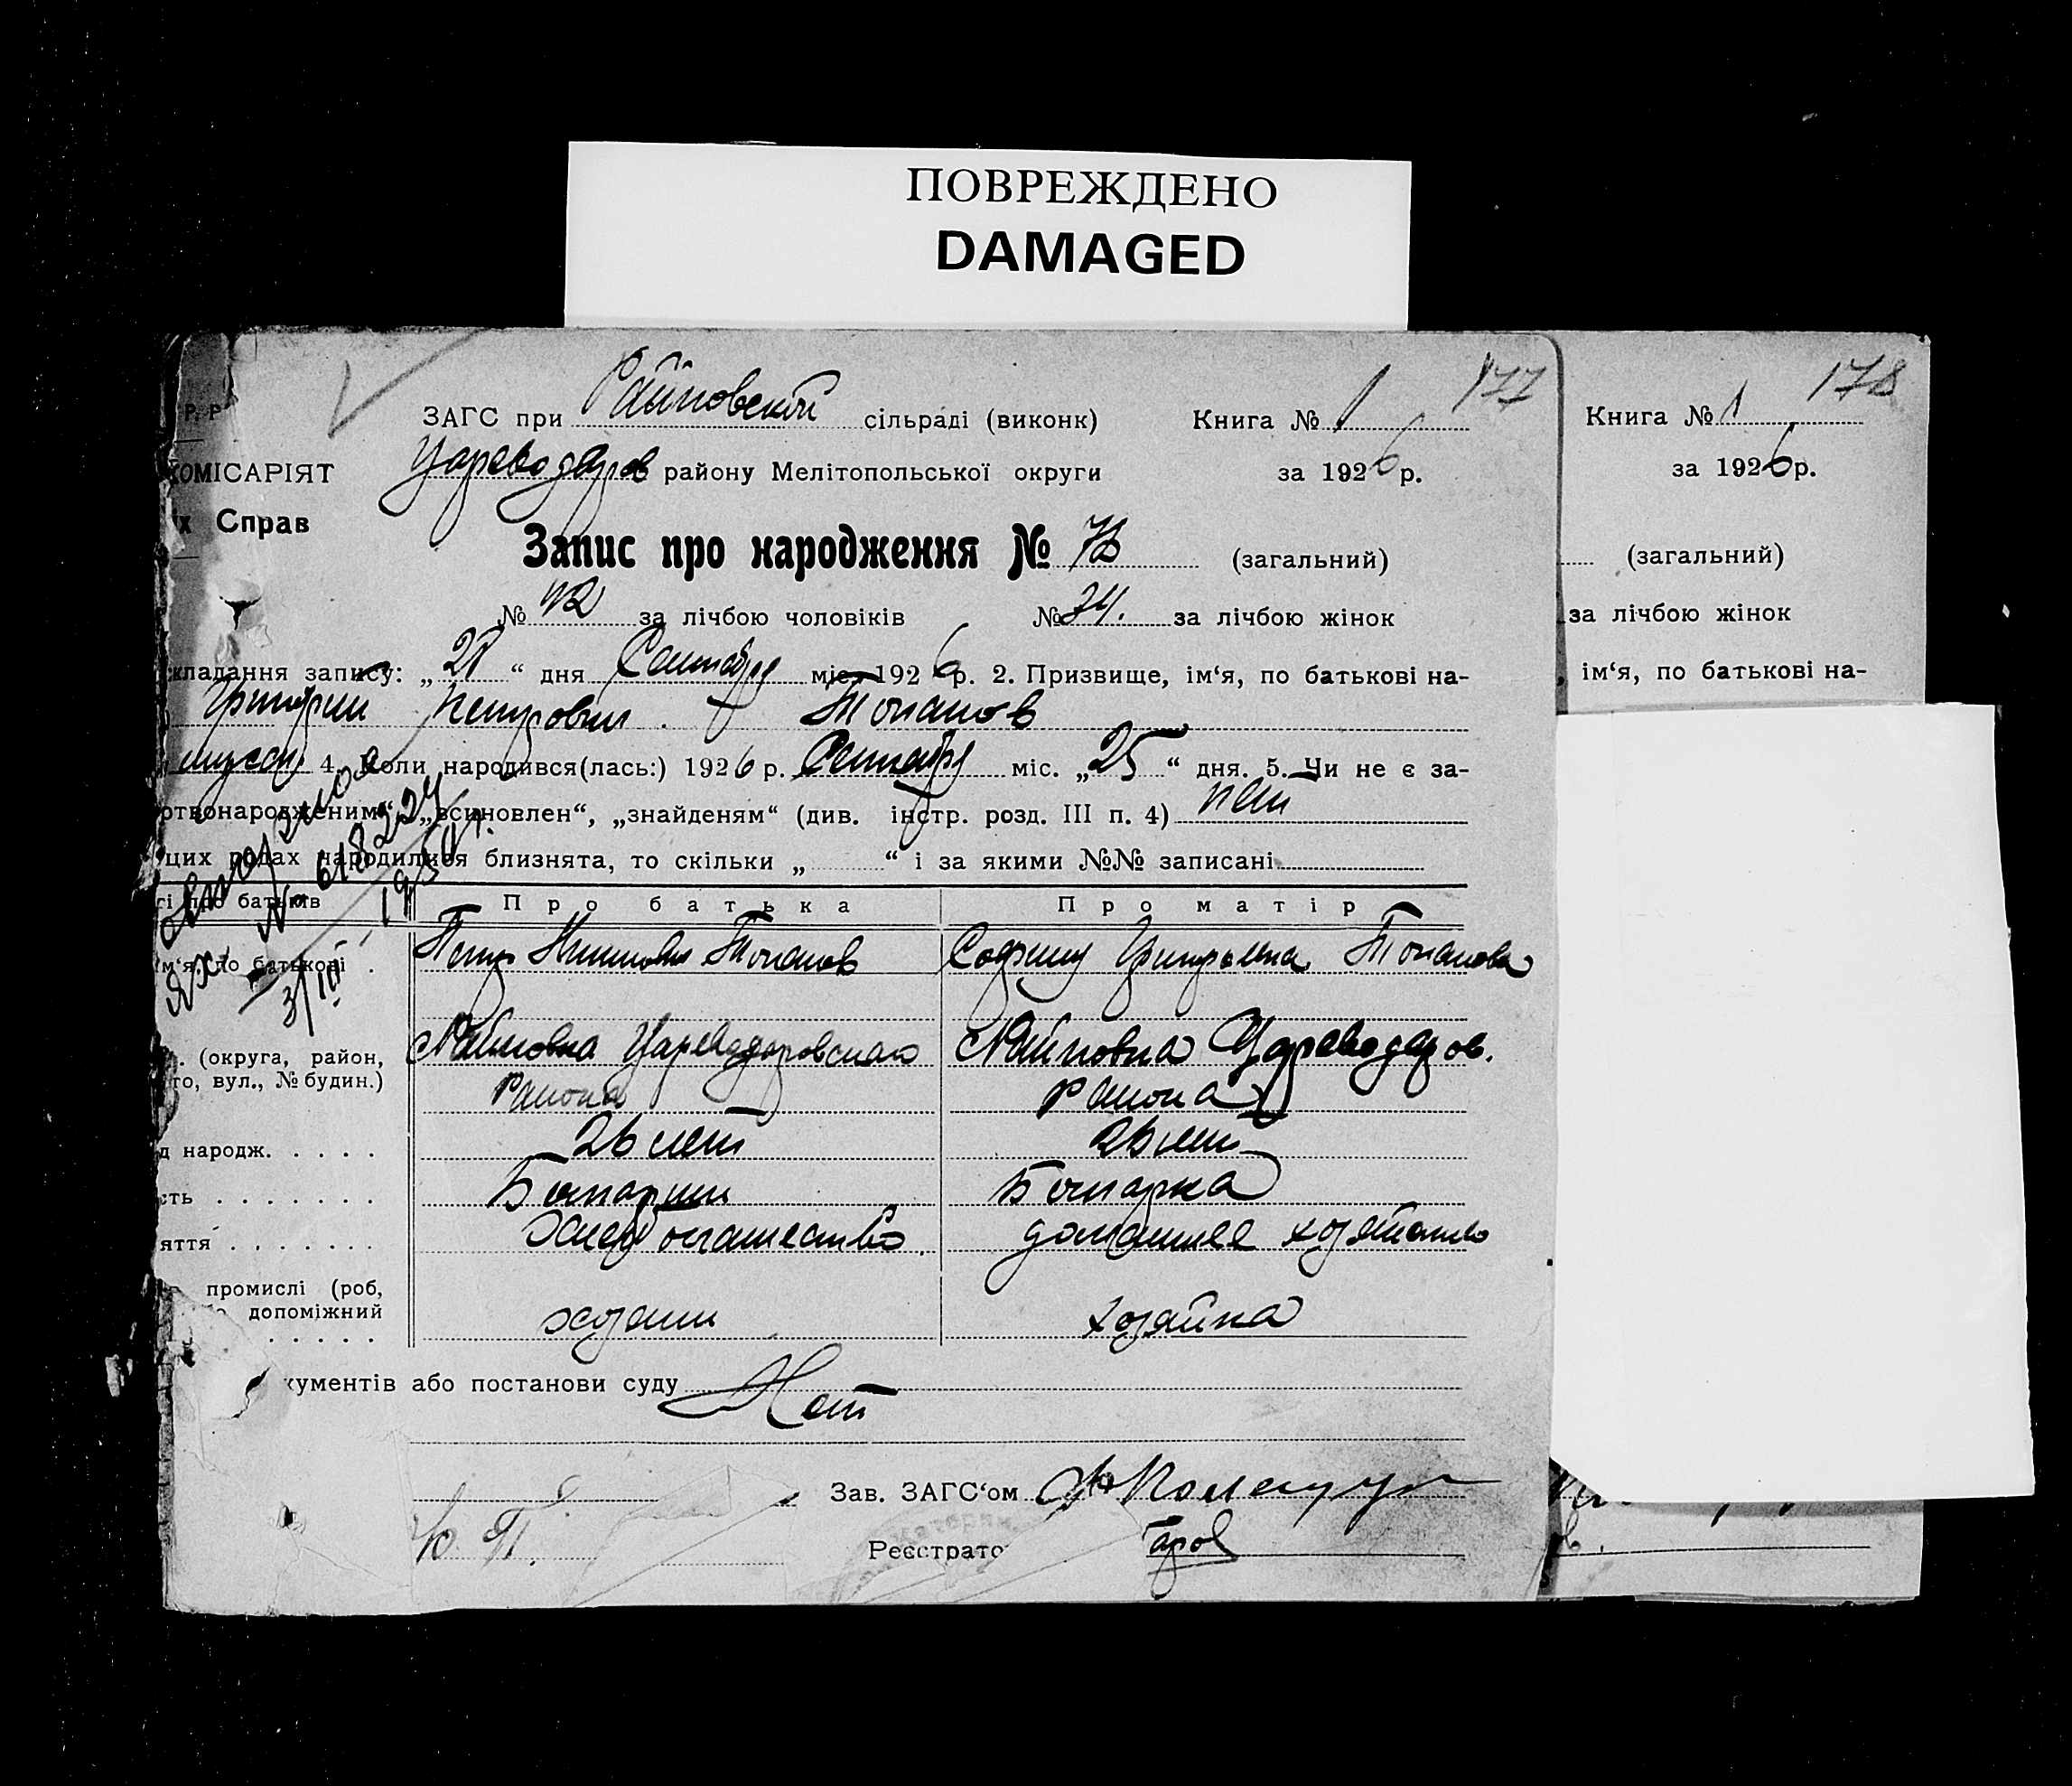 ПОВРЕЖДЕНО
DAMAGED
177
178
Р. Р
ЗАГС при Райновской сільраді (виконк) Книга № 1
Книга № 1
КОМІСАРІЯТ Цареводаров району Мелітопольської округи за 1926 р.
за 1926 р.
х Справ
Запис про народження № (загальний)
(загальний)
№ 42 за лічбою чоловіків № за лічбою жінок
за лічбою жінок
складання запису: „28“ дня Сентября міс. 1926 р. 2. Призвище, ім‘я, по батькові на-
ім‘я, по батькові на-
Григорий Петрович Топалов
мужск 4. Коли народився(лась:) 1926 р. Сентября міс. „25“ дня. 5. Чи не є за-
ртвонародженим“, „всиновлен“, „знайденям“ (див. інстр. розд. III п. 4) нет
цих родах народилися близнята, то скільки „ “ і за якими №№ записані
ЯХ № 618224
3/III 1950 г.
гі про батьків Про батька Про матір
м‘я, по батькові Петр Топалов София Григорьевна Топалова
(округа, район, Райновка Цареводаровского Райновка Цареводаров.
то, вул., № будин.) района района
д народж. 26 лет 26 лет
сть Болгарин Болгарка
яття хлебопашество домашнее хозяйство
промислі (роб,
допоміжний хозяин хозяйка
кументів або постанови суду Нет
Зав. ЗАГС‘ом
Реєстрато